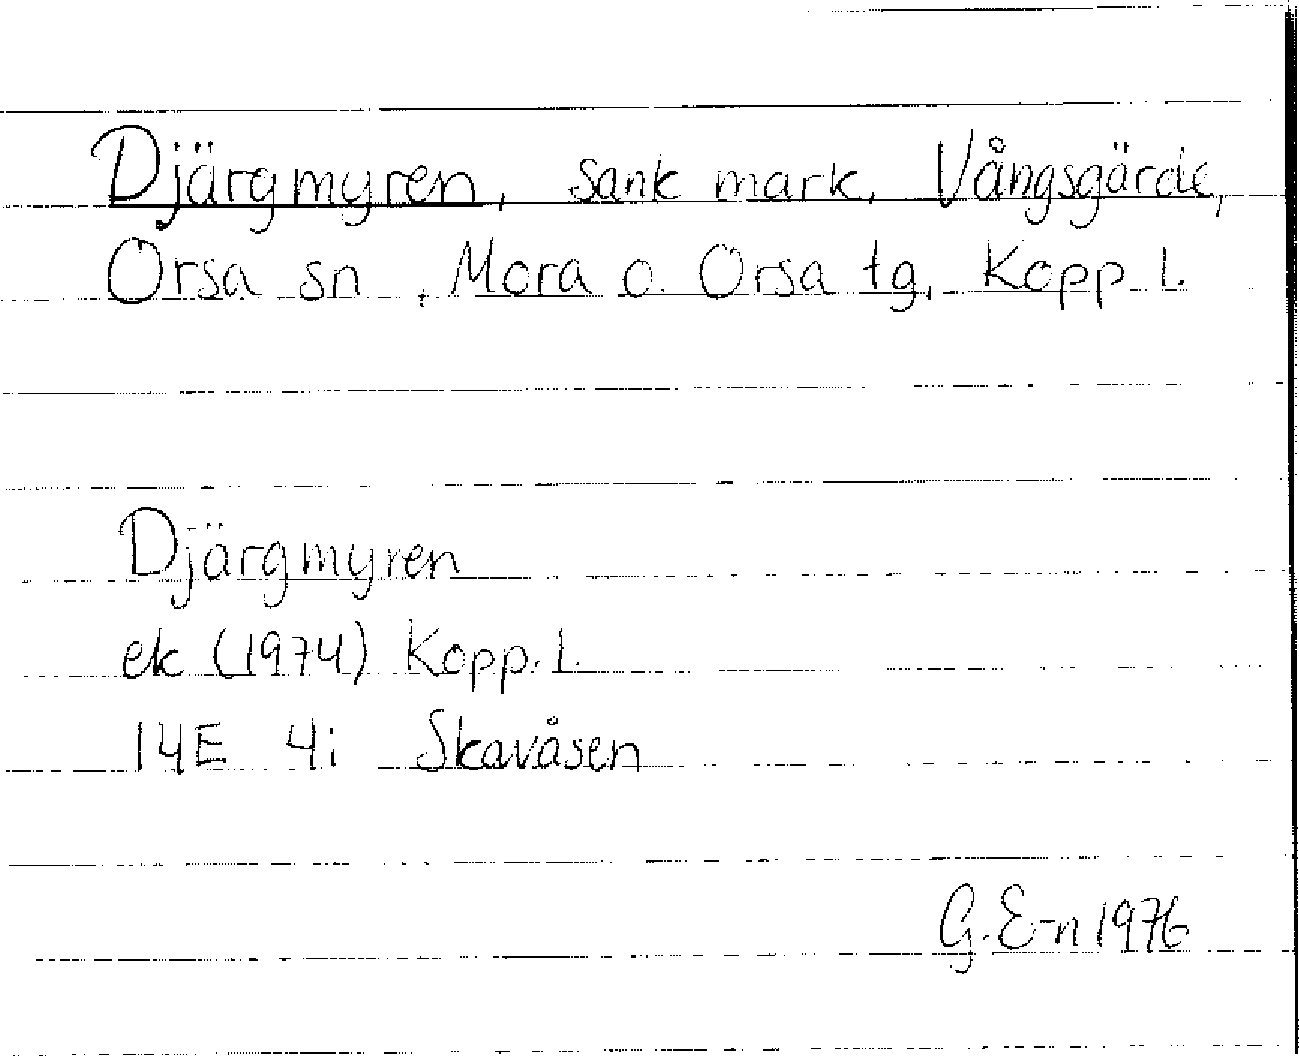 Djärgmyren, sank mark, Vångsgärde,
Orsa sn, Mora o. Orsa tg, Kopp. l.
Djärgmyren
ek (1974) Kopp. l.
14E 4i Skavåsen
G. E-n 1976